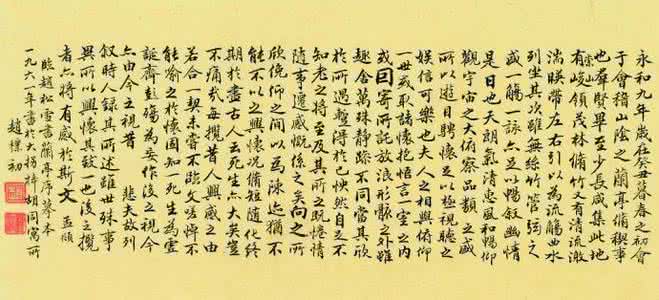 永和九年歲在癸丑暮春之初會
于會稽山陰之蘭亭脩稧事
也羣賢畢至少長咸集此地
有崇山峻領茂林脩竹又有清流激
湍暎帶左右引以為流觴曲水
列坐其次雖無絲竹管弦之
盛一觴一詠亦足以暢叙幽情
是日也天朗氣清惠風和暢仰
觀宇宙之大俯察品類之盛
所以遊目騁懷足以極視聽之
娛信可樂也夫人之相與俯仰
一世或取諸懷抱悟言一室之內
或因寄所託放浪形骸之外雖
趣舍萬殊靜躁不同當其欣
於所遇暫得於己怏然自足不
知老之將至及其所之既惓情
隨事遷感慨係之矣向之所
欣俛仰之間以為陳迹猶不
能不以之興懷況脩短隨化終
期於盡古人云死生亦大矣豈
不痛哉每攬昔人興感之由
若合一契未嘗不臨文嗟悼不
能喻之於懷固知一死生為虛
誕齊彭殤為妄作後之視今
亦由今之視昔 悲夫故列
叙時人錄其所述雖世殊事
異所以興懷其致一也後之攬
者亦將有感於斯文 孟頫
臨趙松雪書蘭亭序摹本
一九六一年書於大拐棒胡同寓所
趙樸初